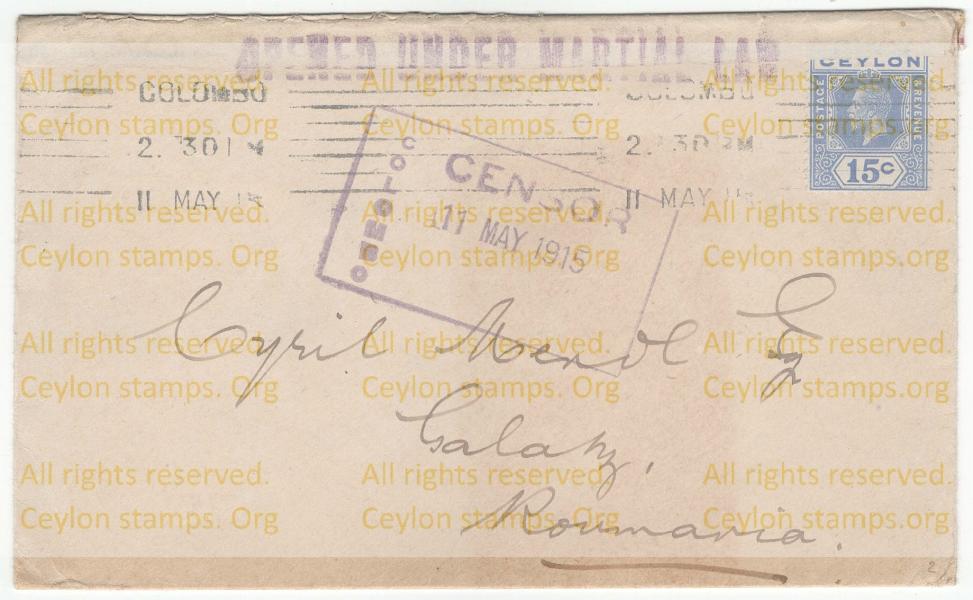 OPENED UNDER MARTIAL LAW
CEYLON
POSTAGE
& REVENUE
15c
COLOMBO
2. 30 PM
11 MAY
COLOMBO
2. 30 PM
11 MAY
COLOMBO
CENSOR
11 MAY 1915
Cyril Mendl Esq
Galatz,
Roumania.
2
All rights reserved. All rights reserved. All rights reserved.
Ceylon stamps. Org Ceylon stamps. Org Ceylon stamps. Org
All rights reserved. All rights reserved. All rights reserved.
Ceylon stamps. Org Ceylon stamps. Org Ceylon stamps. Org
All rights reserved. All rights reserved. All rights reserved.
Ceylon stamps. Org Ceylon stamps. Org Ceylon stamps. Org
All rights reserved. All rights reserved. All rights reserved.
Ceylon stamps. Org Ceylon stamps. Org Ceylon stamps. Org